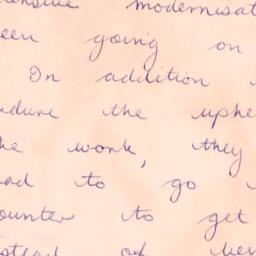 modernisat
een going on
In addition
ndure the uphe
he work, they
ad to go
ounter to get
nstead of